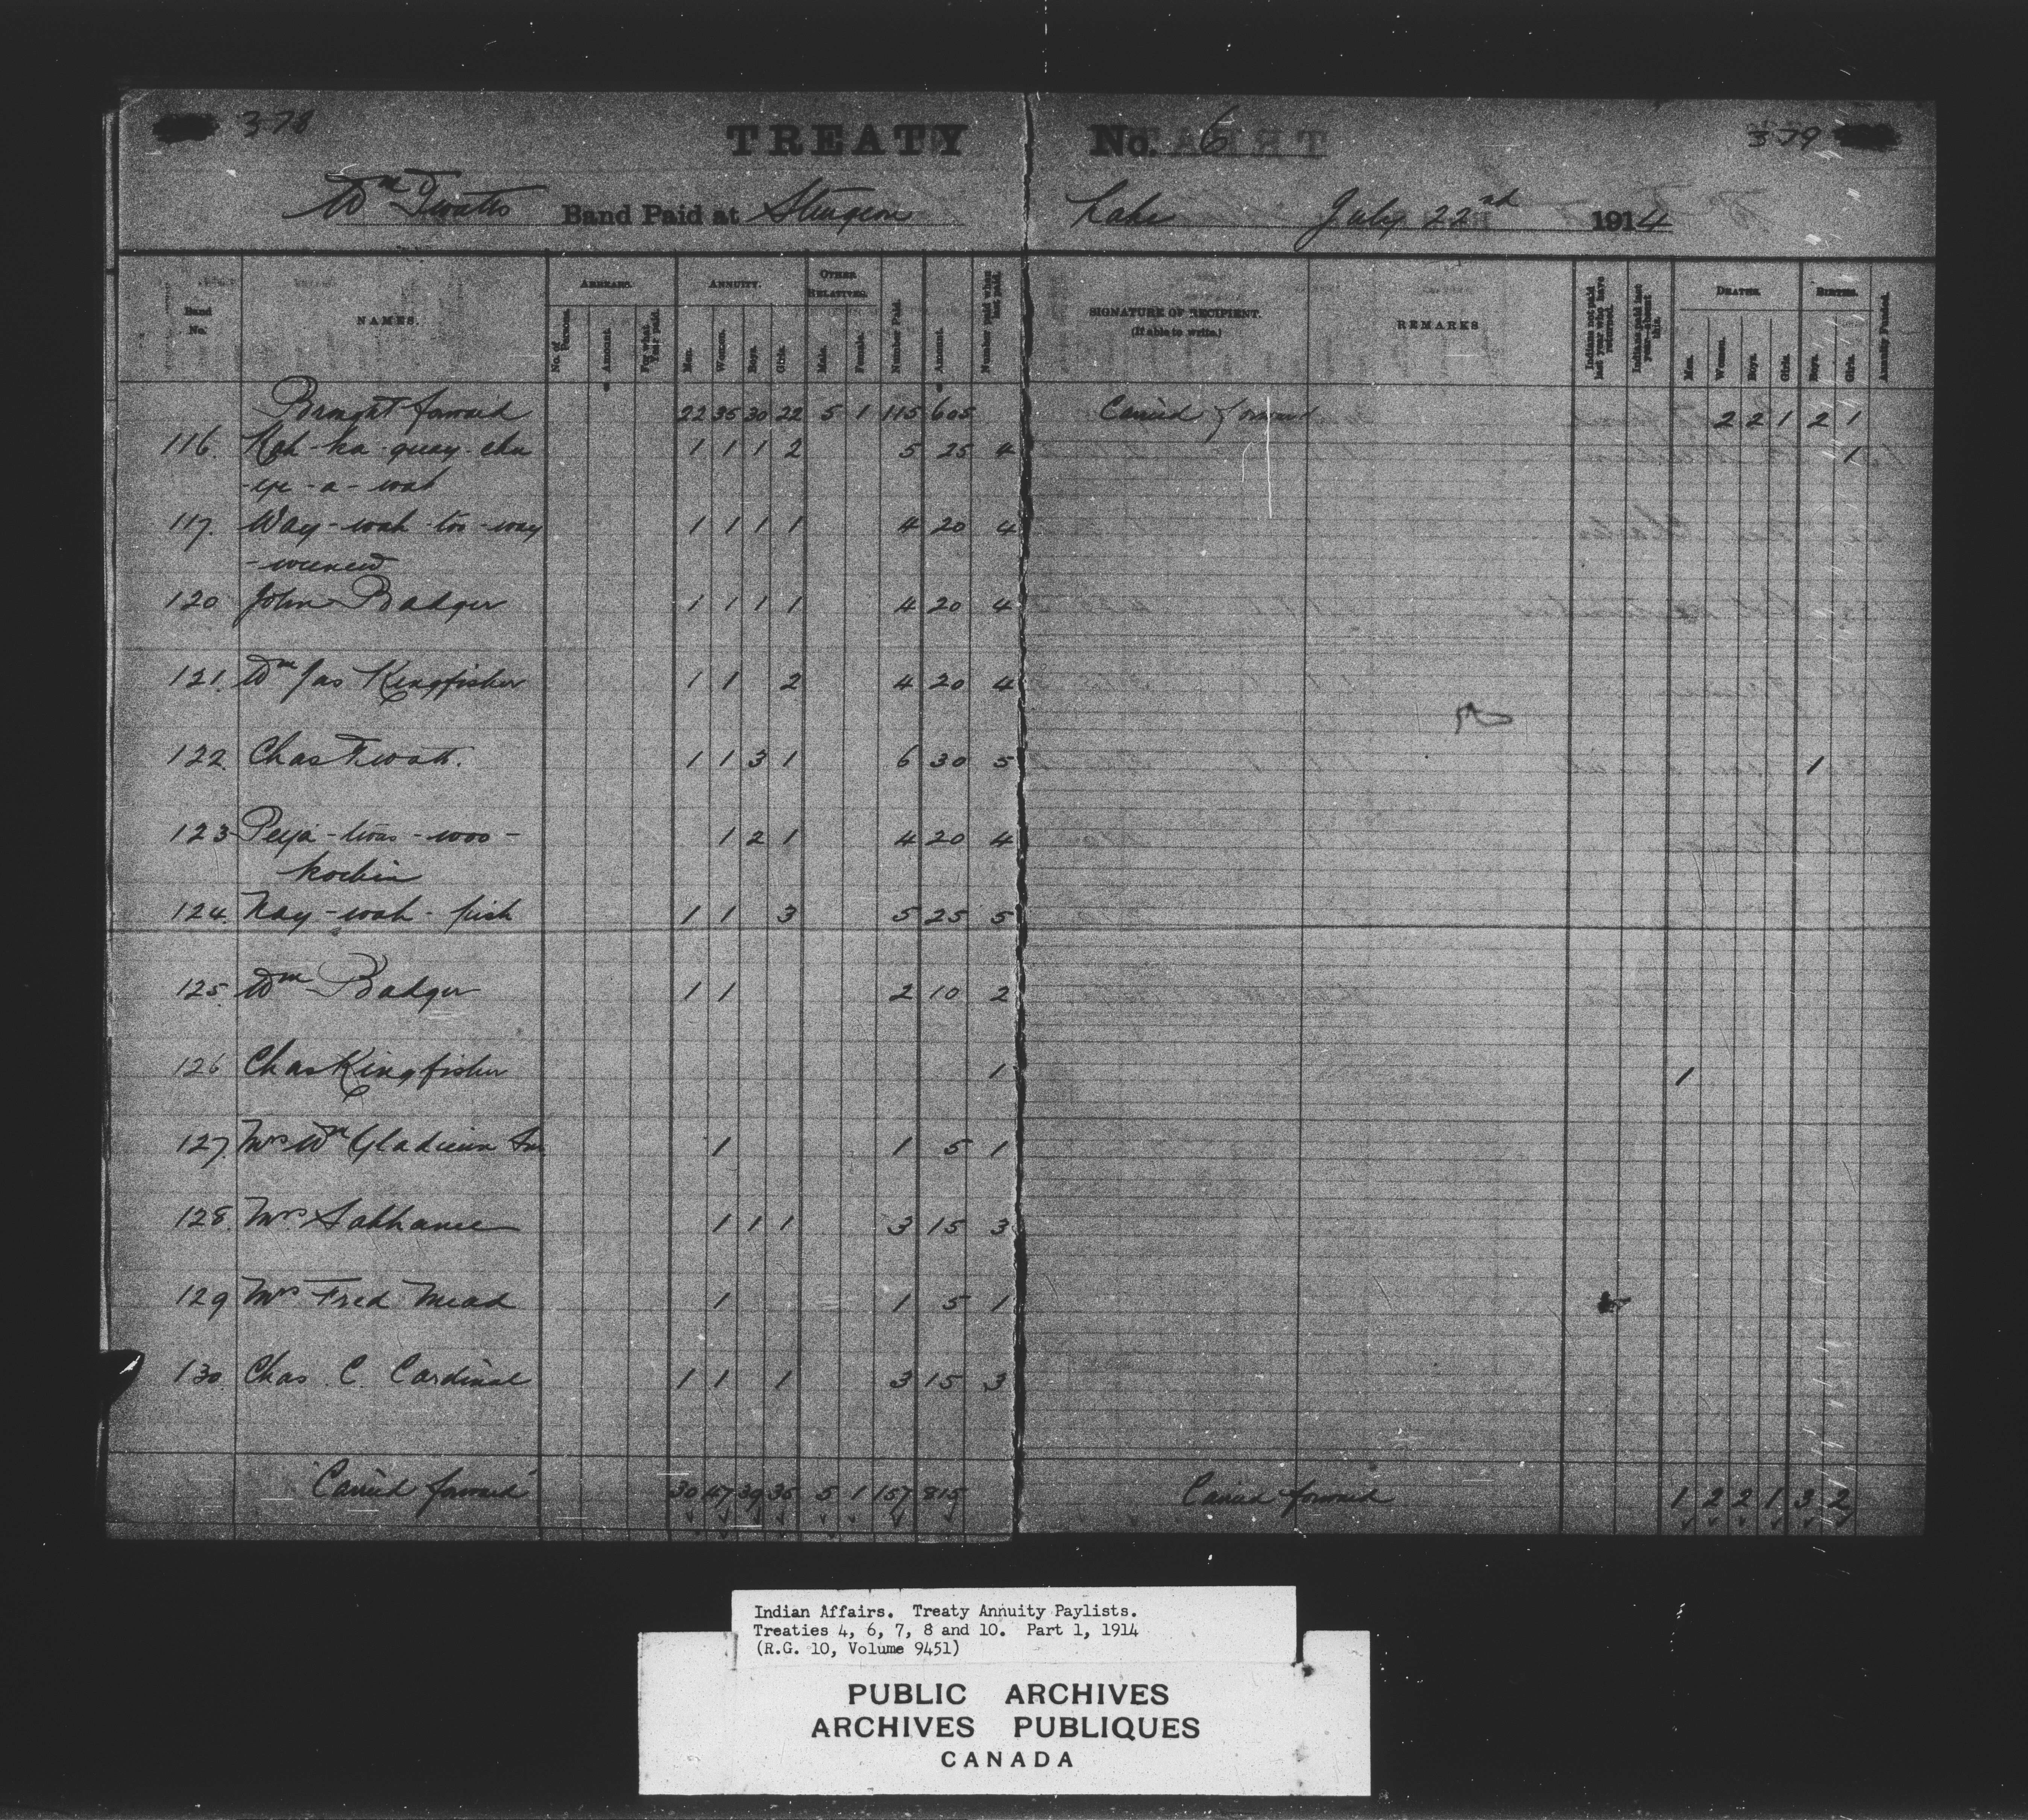 378
TREATY No. 6
379
Wm Twatts Band Paid at Sturgeon Lake July 22nd 1914
Band No.
NAMES.
ARREARS.
No. of Persons.
Amount.
For what Year paid.
ANNUITY.
Men.
Women.
Boys.
Girls.
OTHER RELATIVES.
Male.
Female.
Number Paid.
Amount.
Number paid when last paid.
SIGNATURE OF RECIPIENT.
(If able to write.)
REMARKS
Indians not paid last year who have returned.
Indians paid last year—absent this.
DEATHS.
Men.
Women.
Boys.
Girls.
BIRTHS.
Boys.
Girls.
Annuity Funded.
Brought forward 22 35 30 22 5 1 115 605 Carried forward 2 2 1 2 1
116. Kah-ka-quay-cha 1 1 1 2 5 25 4 1
-ye-a-wah
117. Way-wah-too-way 1 1 1 1 4 20 4
120 John Badger 1 1 1 1 4 20 4
121. Wm Jas Kingfisher 1 1 2 4 20 4
122. Chas Twatt. 1 1 3 1 6 30 5 1
123 1 2 1 4 20 4
124. Nay-wah-pish 1 1 3 5 25 5
125. Wm Badger 1 1 2 10 2
126 Chas Kingfisher 1 1
127. Mrs Wm Gladieux 1 1 5 1
128. Mrs 1 1 1 3 15 3
129 Mrs Fred Mead 1 1 5 1
130. Chas. C. Cardinal 1 1 1 3 15 3
Carried forward 30 47 39 35 5 1 157 815 Carried forward 1 2 2 1 3 2
Indian Affairs. Treaty Annuity Paylists.
Treaties 4, 6, 7, 8 and 10. Part 1, 1914
(R.G. 10, Volume 9451)
PUBLIC ARCHIVES
ARCHIVES PUBLIQUES
CANADA